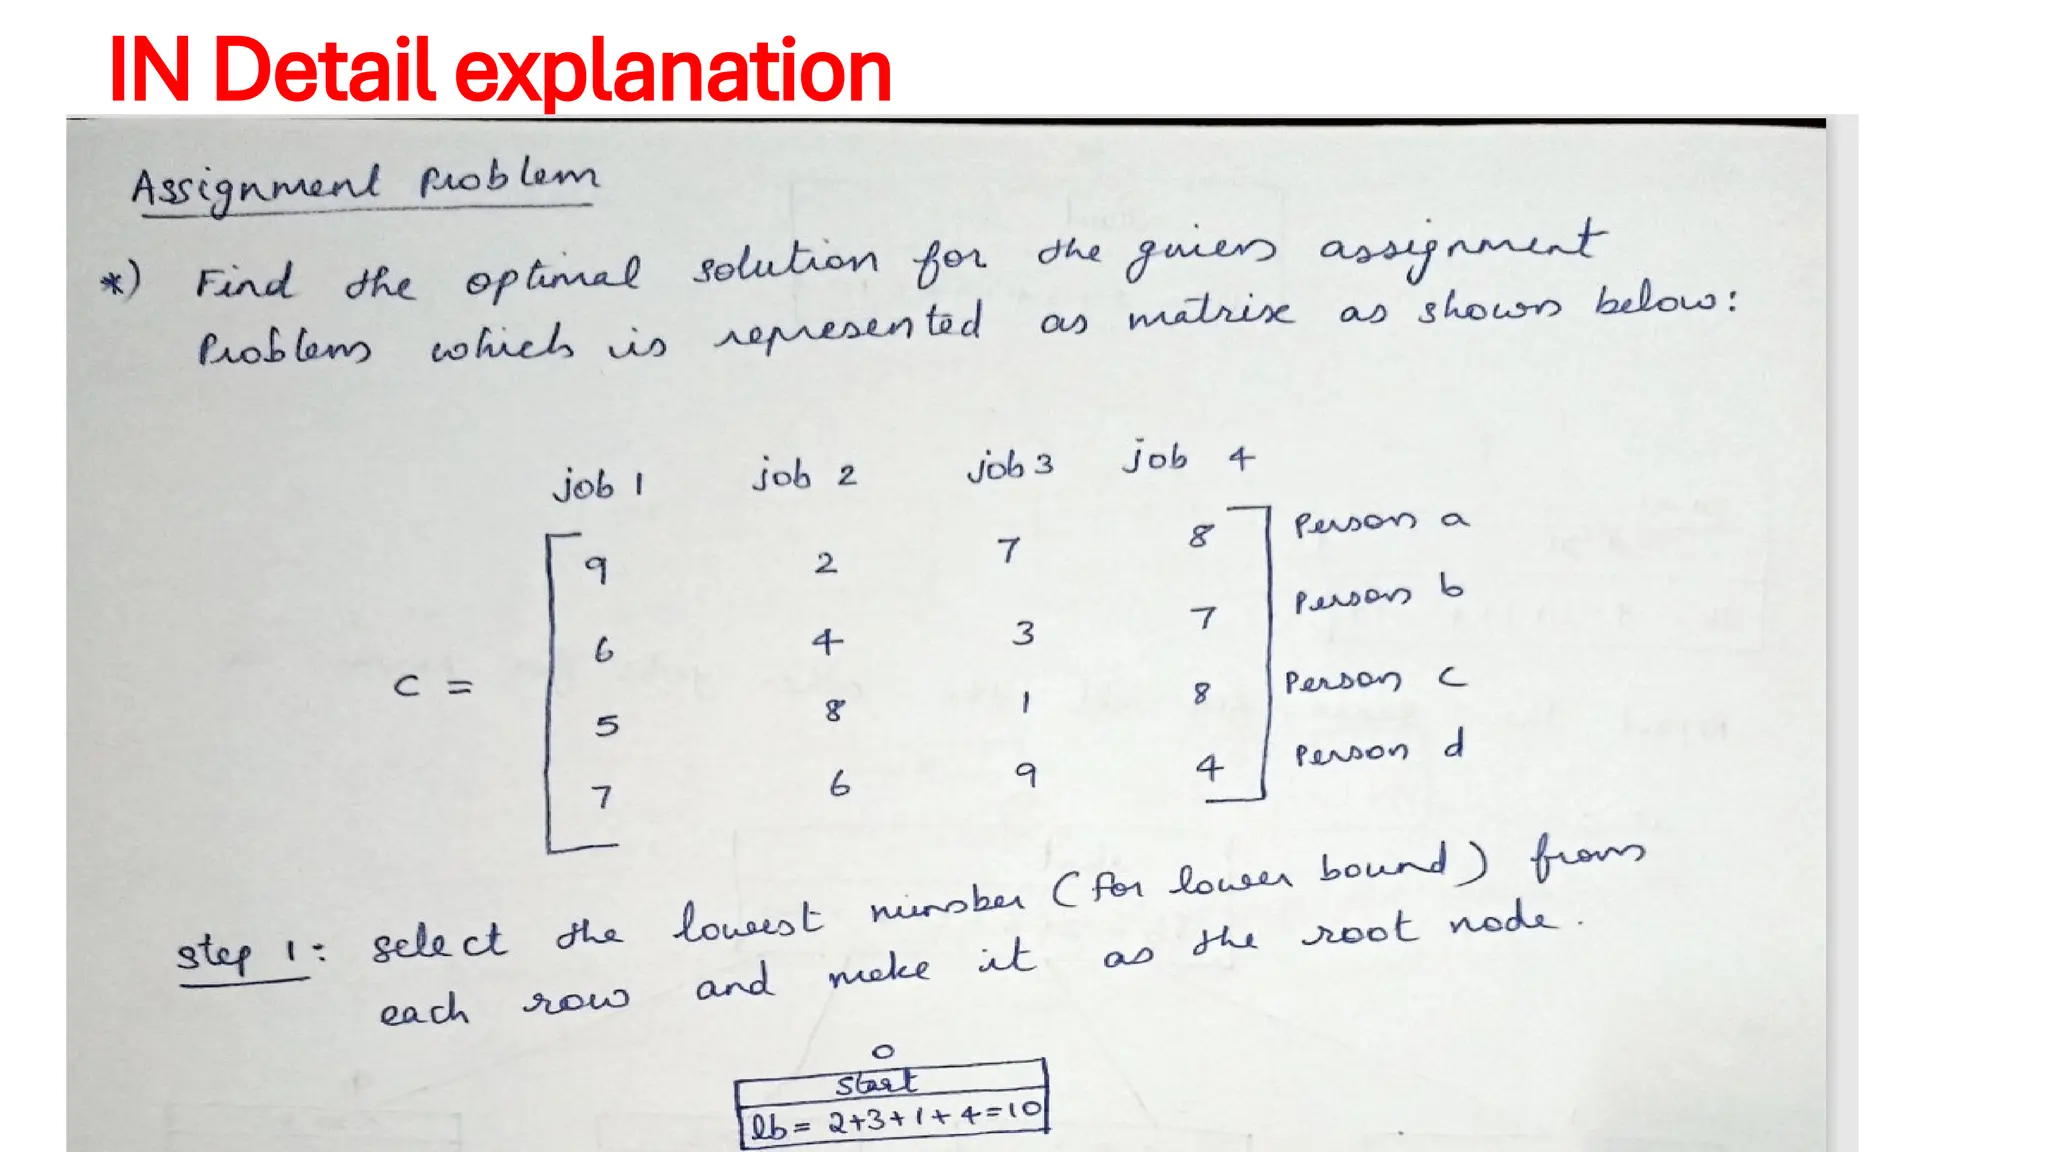 IN Detail explanation
Assignment Problem
*) Find the optimal solution for the given assignment
Problem which is represented as matrix as shown below:
job 1 job 2 job 3 job 4
9 2 7 8 Person a
6 4 3 7 Person b
C =
5 8 1 8 Person c
7 6 9 4 Person d
Step 1: Select the lowest number (for lower bound) from
each row and make it as the root node.
0
Start
lb = 2+3+1+4=10